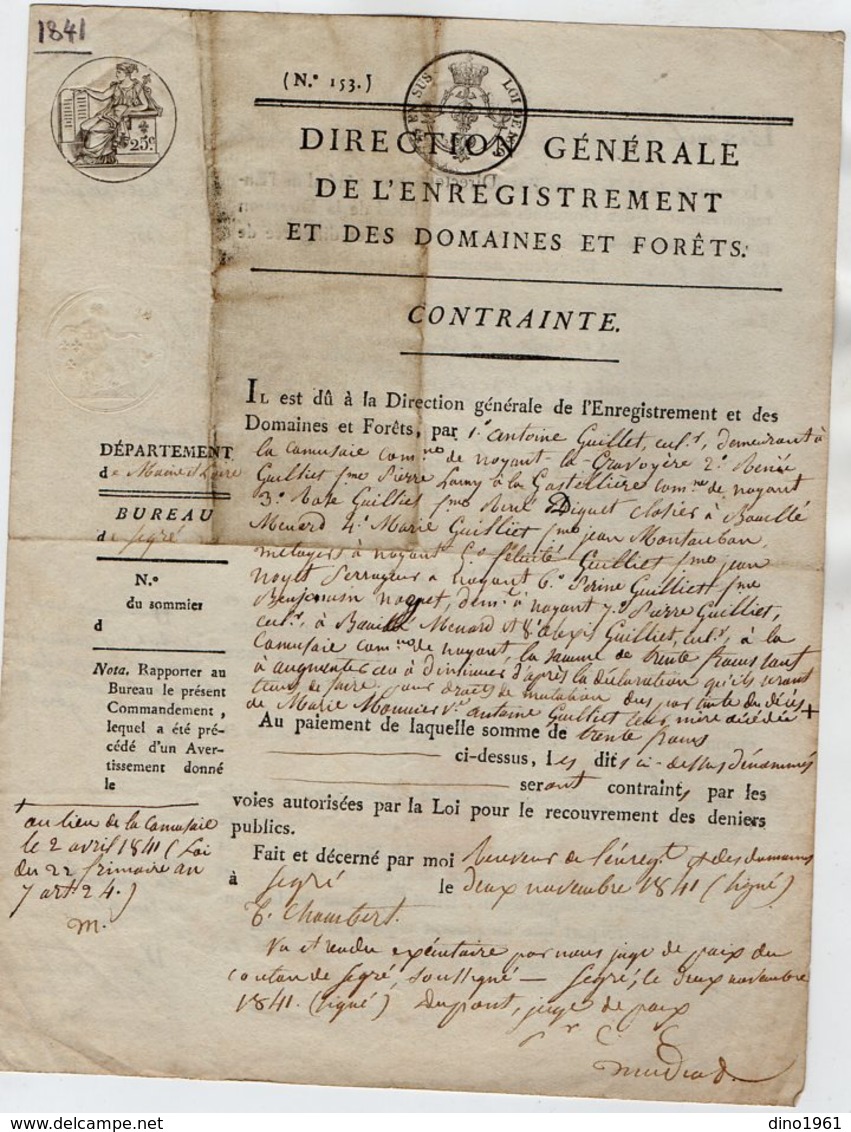 1841
(N.º 153.)
EN SUS LOI DE
25c.
DIRECTION GÉNÉRALE
DE L'ENREGISTREMENT
ET DES DOMAINES ET FORÊTS.
CONTRAINTE.
DÉPARTEMENT
de Maine et Loire
BUREAU
de Segré
N.º
du sommier
d
Nota. Rapporter au
Bureau le présent
Commandement,
lequel a été pré-
cédé d'un Aver-
tissement donné
le
+
au lieu de la Camusaie
le 2 avril 1841 (Loi
du 22 frimaire an
7 art. 24.)
m.
IL est dû à la Direction générale de l'Enregistrement et des
Domaines et Forêts, par 1.º antoine Guillet, cul.r, demeurant à
la Camusaie com.ne de noyant-la-Gravoyère 2.º Renée
Guilliet f.me Pierre Lamy à la Gastellière com.ne de noyant
3.º Rose Guilliet f.me René Diguet closier à Bouillé
Menard 4.º Marie Guilliet f.me jean Montauban,
métayers à noyant 5.º félicité Guilliet f.me jean
noyet à noyant 6.º Perine Guilliet f.me
Benjamin noquet, dem.t à noyant 7.º Pierre Guilliet,
cul.r, à Bouillé Menard et 8.º alexis Guilliet, cul.r, à la
Camusaie com.ne de noyant, la somme de trente francs sauf
à augmenter ou à diminuer d'après la déclaration qu'ils seront
tenus de faire, pour droits de mutation dus par suite du décès
de Marie Monnier v.e antoine Guilliet leur mère décédée +
Au paiement de laquelle somme de trente francs
ci-dessus, les dits ci-dessus dénommés
seront contraints par les
voies autorisées par la Loi pour le recouvrement des deniers
publics.
Fait et décerné par moi Receveur de l'enreg.t et des domaines
à Segré le deux novembre 1841 (signé)
T. Chambert.
Vu et rendu exécutoire par nous juge de paix du
canton de Segré, soussigné — Segré, le deux novembre
1841. (signé) Dupont, juge de paix
dino1961